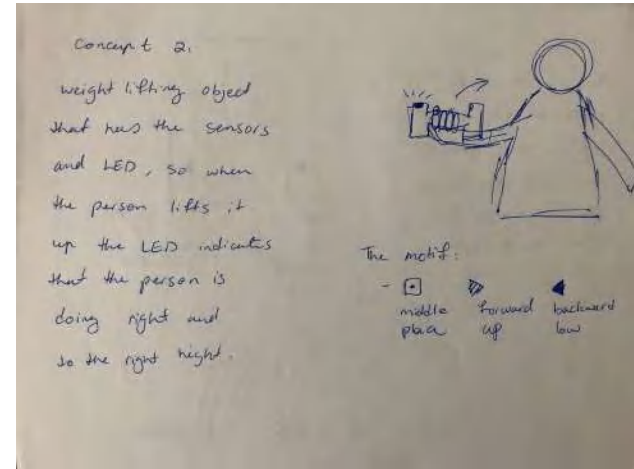 Concept 2.
weight lifting object
that has the sensors
and LED, so when
the person lifts it
up the LED indicates
that the person is
doing right and
to the right hight.
The motif:
- middle forward backward
place up low